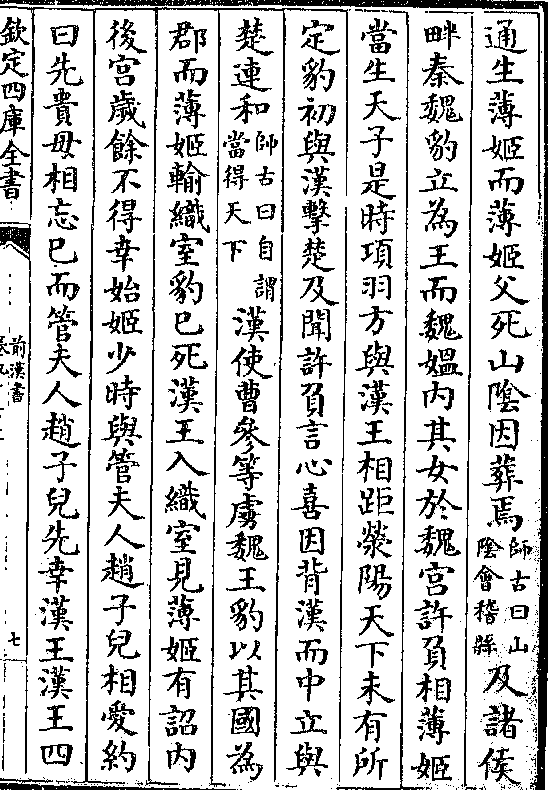 通生薄姬而薄姬父死山陰因葬焉師古曰山陰會稽縣及諸侯
畔秦魏豹立為王而魏媼內其女於魏宮許負相薄姬
當生天子是時項羽方與漢王相距滎陽天下未有所
定豹初與漢擊楚及聞許負言心喜因背漢而中立與
楚連和師古曰自謂當得天下漢使曹參等虜魏王豹以其國為
郡而薄姬輸織室豹已死漢王入織室見薄姬有詔內
後宮歲餘不得幸始姬少時與管夫人趙子兒相愛約
曰先貴毋相忘已而管夫人趙子兒先幸漢王漢王四
欽定四庫全書
前漢書
七